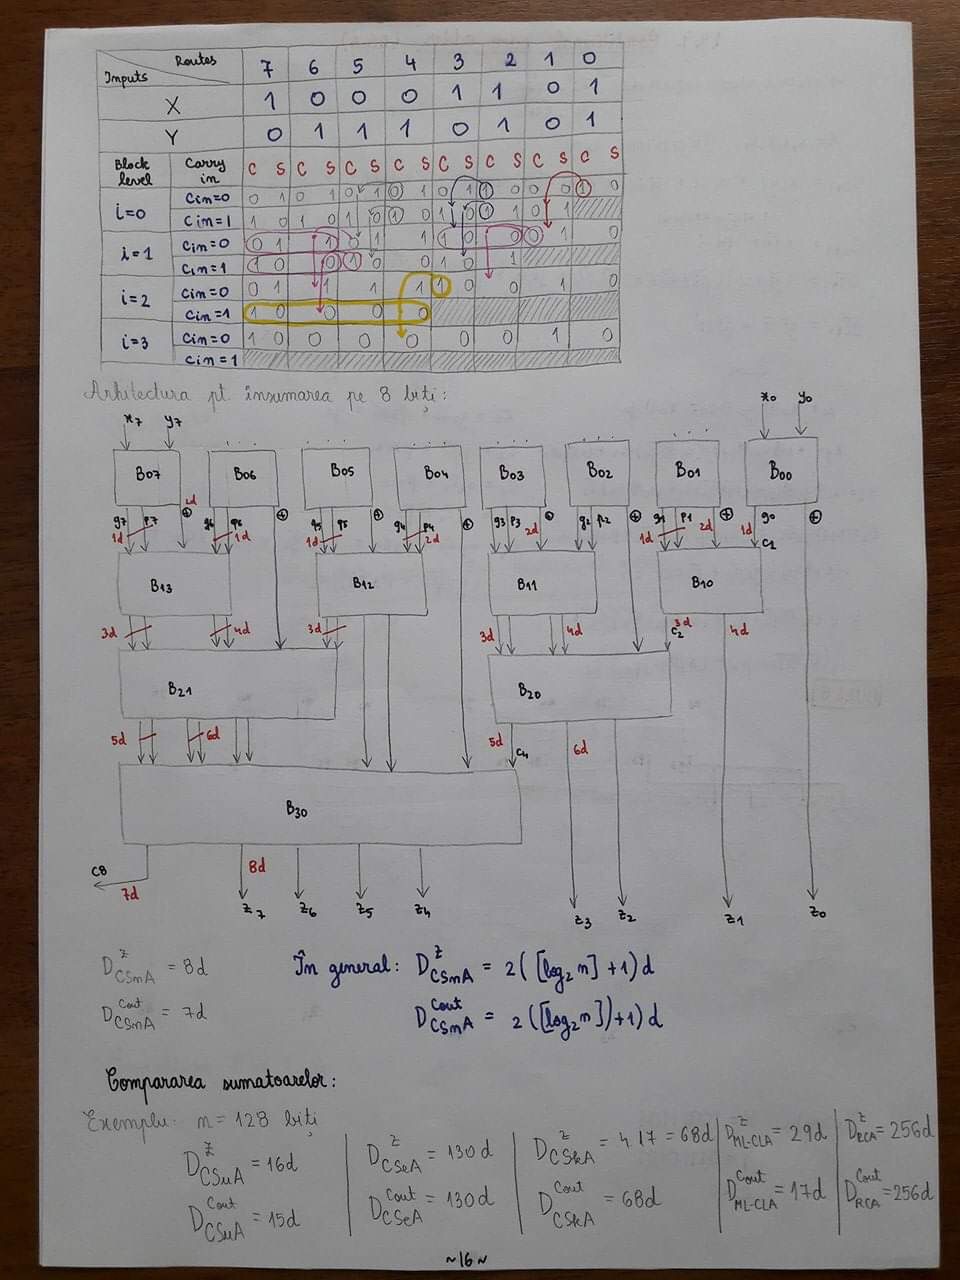 Routes 7 6 5 4 3 2 1 0
Inputs
X 1 0 0 0 1 1 0 1
Y 0 1 1 1 0 1 0 1
Block level Carry in C S C S C S C S C S C S C S C S
i=0 Cin=0 0 1 0 1 0 1 0 1 0 1 1 0 0 0 1 0
Cin=1 1 0 1 0 1 0 1 0 1 0 1 1 0 1
i=1 Cin=0 0 1 1 0 1 1 1 0 0 0 1 0
Cin=1 1 0 0 1 0 0 1 0 1
i=2 Cin=0 0 1 1 1 1 1 0 0 1 0
Cin=1 1 0 0 0 0
i=3 Cin=0 1 0 0 0 0 0 0 1 0
Cin=1
Arhitectura pt. însumarea pe 8 biți:
x7 y7 x0 y0
B07 B06 B05 B04 B03 B02 B01 B00
1d
g7 p7 ⊕ g6 p6 ⊕ g5 p5 ⊕ g4 p4 ⊕ g3 p3 ⊕ g2 p2 ⊕ g1 p1 ⊕ g0 ⊕
1d 1d 1d 2d 2d 1d 2d 1d C1
B13 B12 B11 B10
3d 4d 3d 3d 4d 3d C2 4d
B21 B20
5d 6d 5d C4 6d
B30
C8 7d 8d
Z7 Z6 Z5 Z4 Z3 Z2 Z1 Z0
D^Z_CSmA = 8d În general: D^Z_CSmA = 2([log2 n] +1) d
D^Cout_CSmA = 7d D^Cout_CSmA = 2([log2 n])+1) d
Compararea sumatoarelor:
Exemplu: n = 128 biți
D^Z_CSuA = 16d D^Z_CSeA = 130d D^Z_CSkA = 4·17 = 68d D^Z_ML-CLA = 29d D^Z_RCA = 256d
D^Cout_CSuA = 15d D^Cout_CSeA = 130d D^Cout_CSkA = 68d D^Cout_ML-CLA = 17d D^Cout_RCA = 256d
~16~